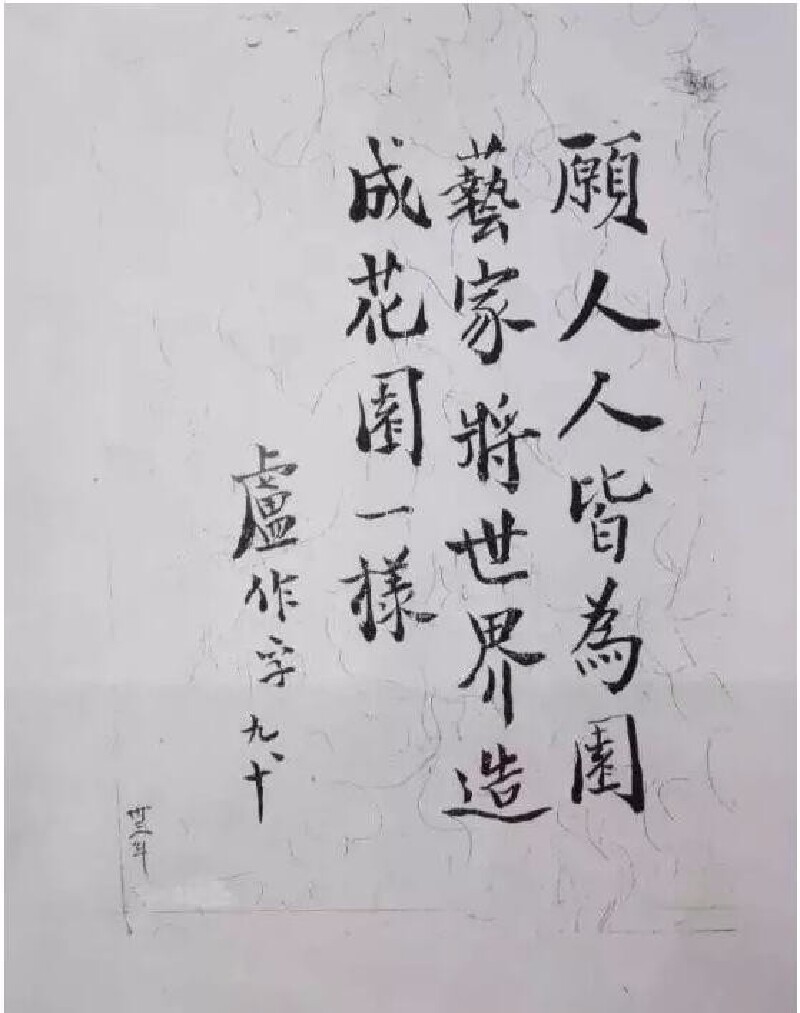 願人人皆為園
藝家將世界造
成花園一樣
盧作孚 九、十
卅三年